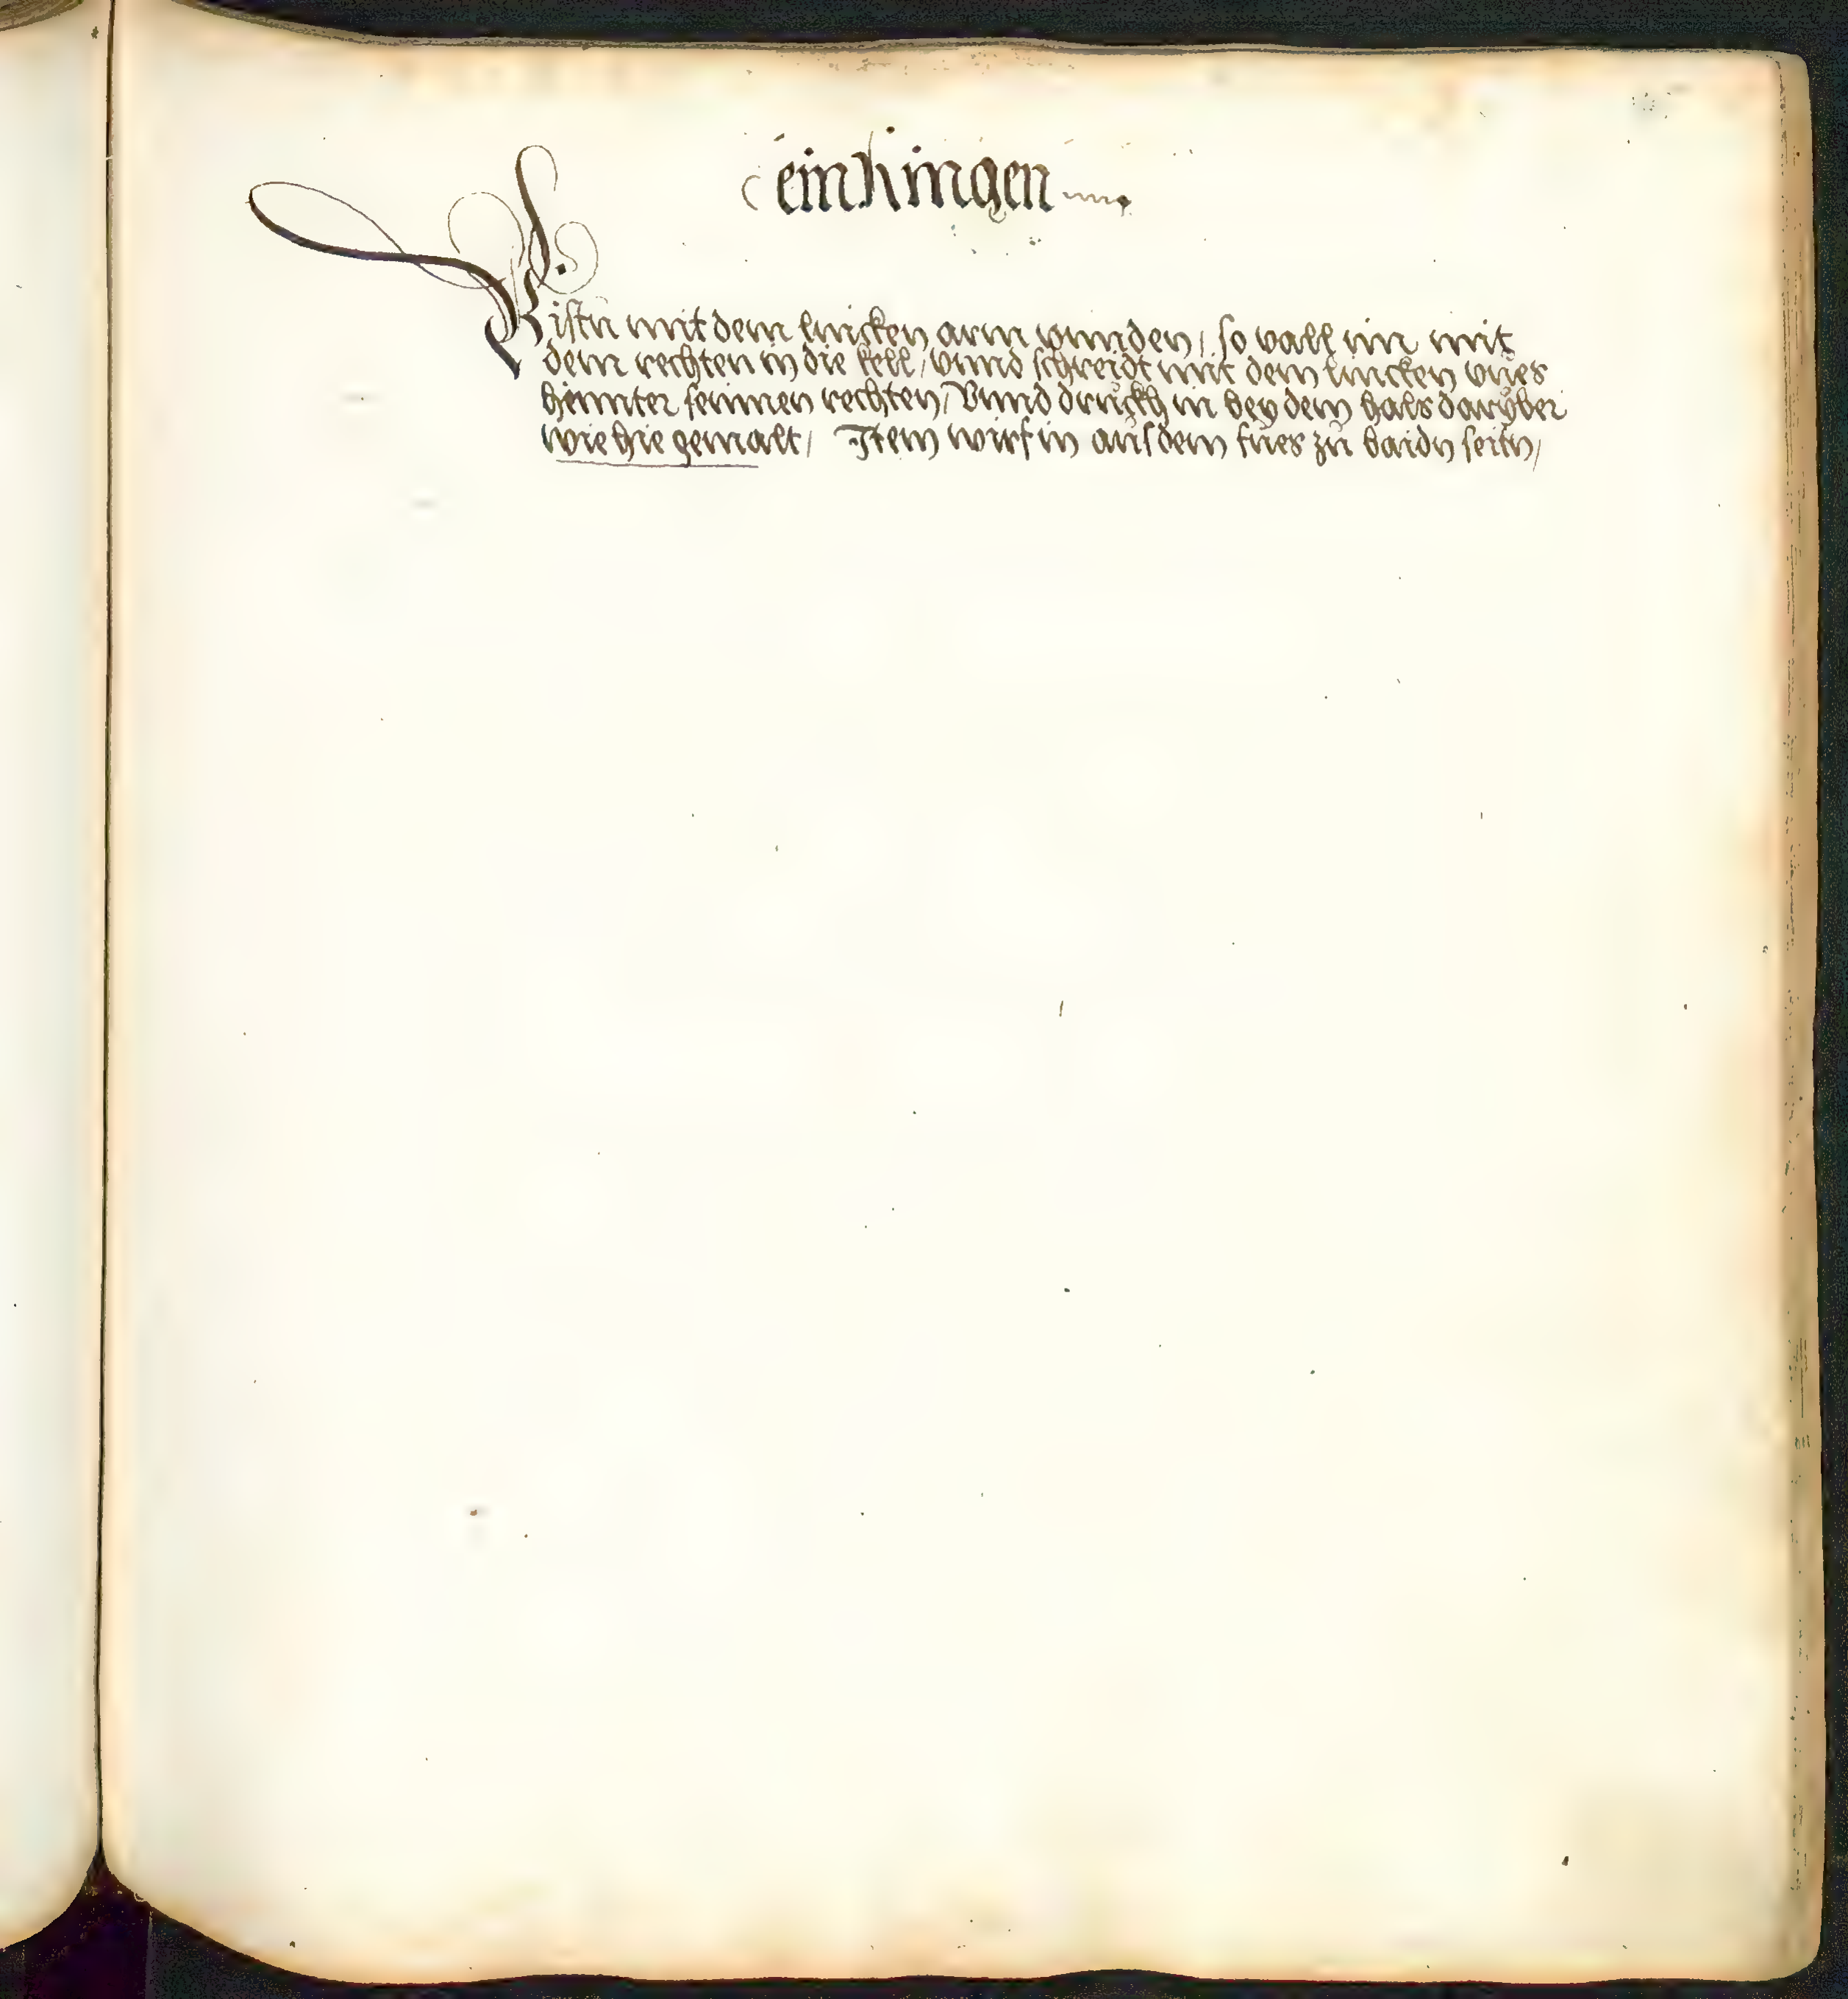 ein Ringen
Bistu mit dem lincken arm vunden / so vall im mit
dem rechten in die kell / vnnd schreidt mit dem lincken vues
hinnter seinnen rechten / Vnnd druckh in bey dem hals daryber
wie hie gemalt / Item wirf in aus dem fues zu baidn seitn /